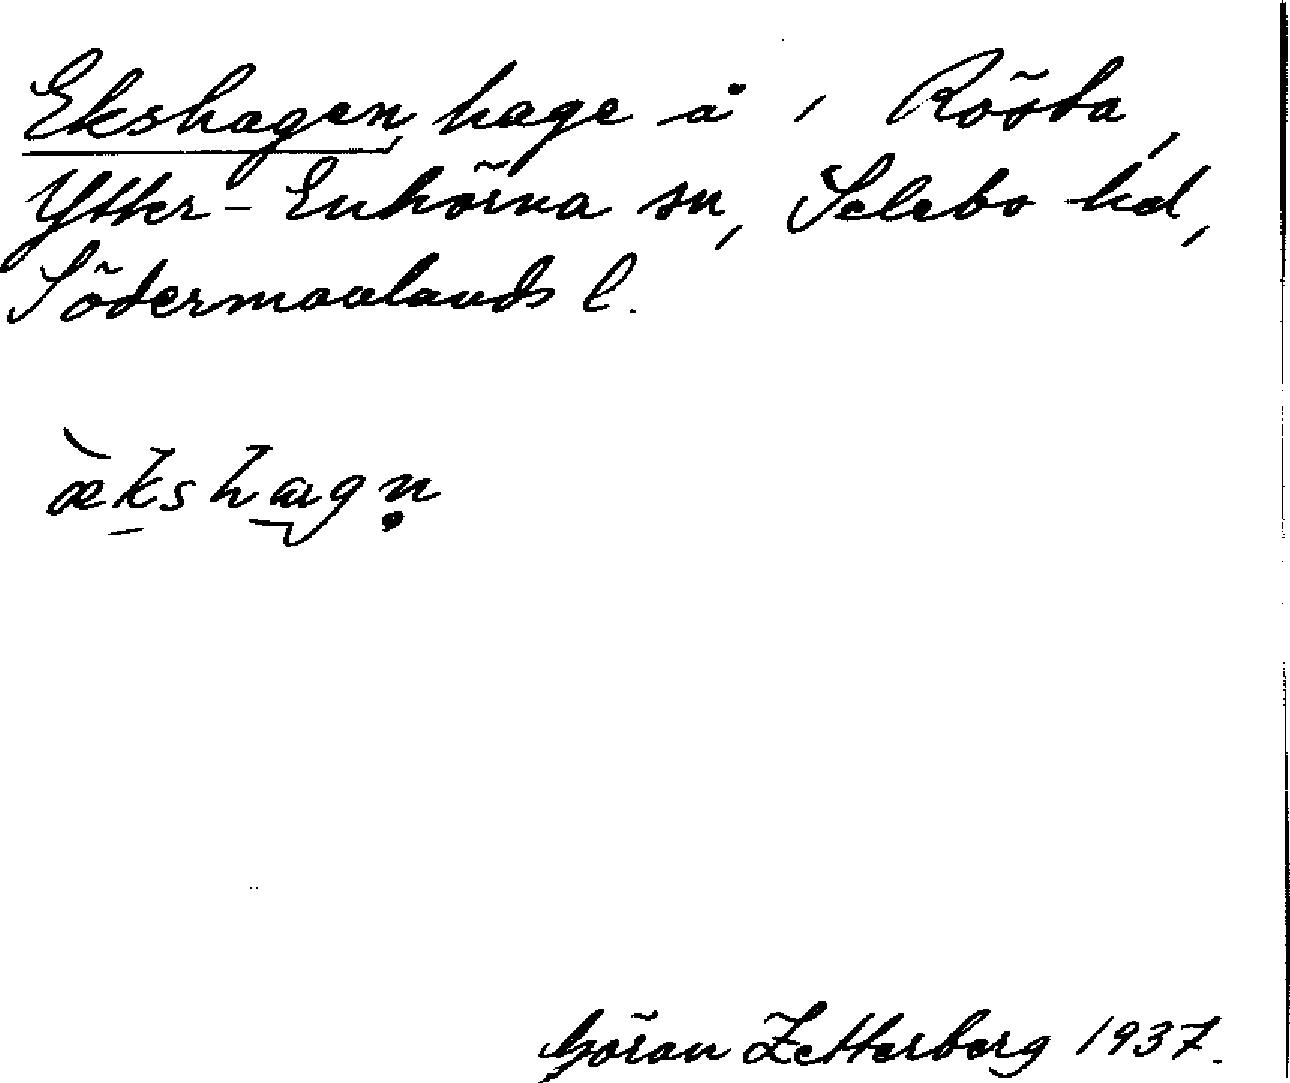 Ekshagen, hage å i Rösta,
Ytter-Enhörna sn, Selebo hd,
Södermanlands l.
æ̀kshagn̥
Göran Zetterberg 1937.